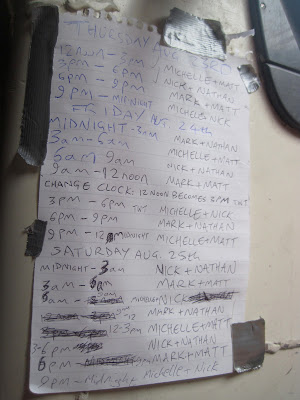 THURSDAY AUG 23RD
12 NOON - 3PM MICHELLE + MATT
3PM - 6PM NICK + NATHAN
6PM - 9PM MARK + MATT
9PM - MIDNIGHT MICHELLE + NICK
FRIDAY AUG. 24th
MIDNIGHT - 3am MARK + NATHAN
3am - 6am MICHELLE + MATT
6am 9am NICK + NATHAN
9am - 12 NOON MARK + MATT
CHANGE CLOCK: 12 NOON BECOMES 3PM TNT
3PM - 6PM TNT MICHELLE + NICK
6PM - 9PM MARK + NATHAN
9PM - 12 MIDNIGHT MICHELLE + MATT
SATURDAY AUG. 25th
MIDNIGHT - 3am NICK + NATHAN
3am - 6am MARK + MATT
6am - NICK
MARK + NATHAN
12-3pm MICHELLE + MATT
3-6pm NICK + NATHAN
6pm MARK + MATT
9pm - Midnight Michelle + Nick